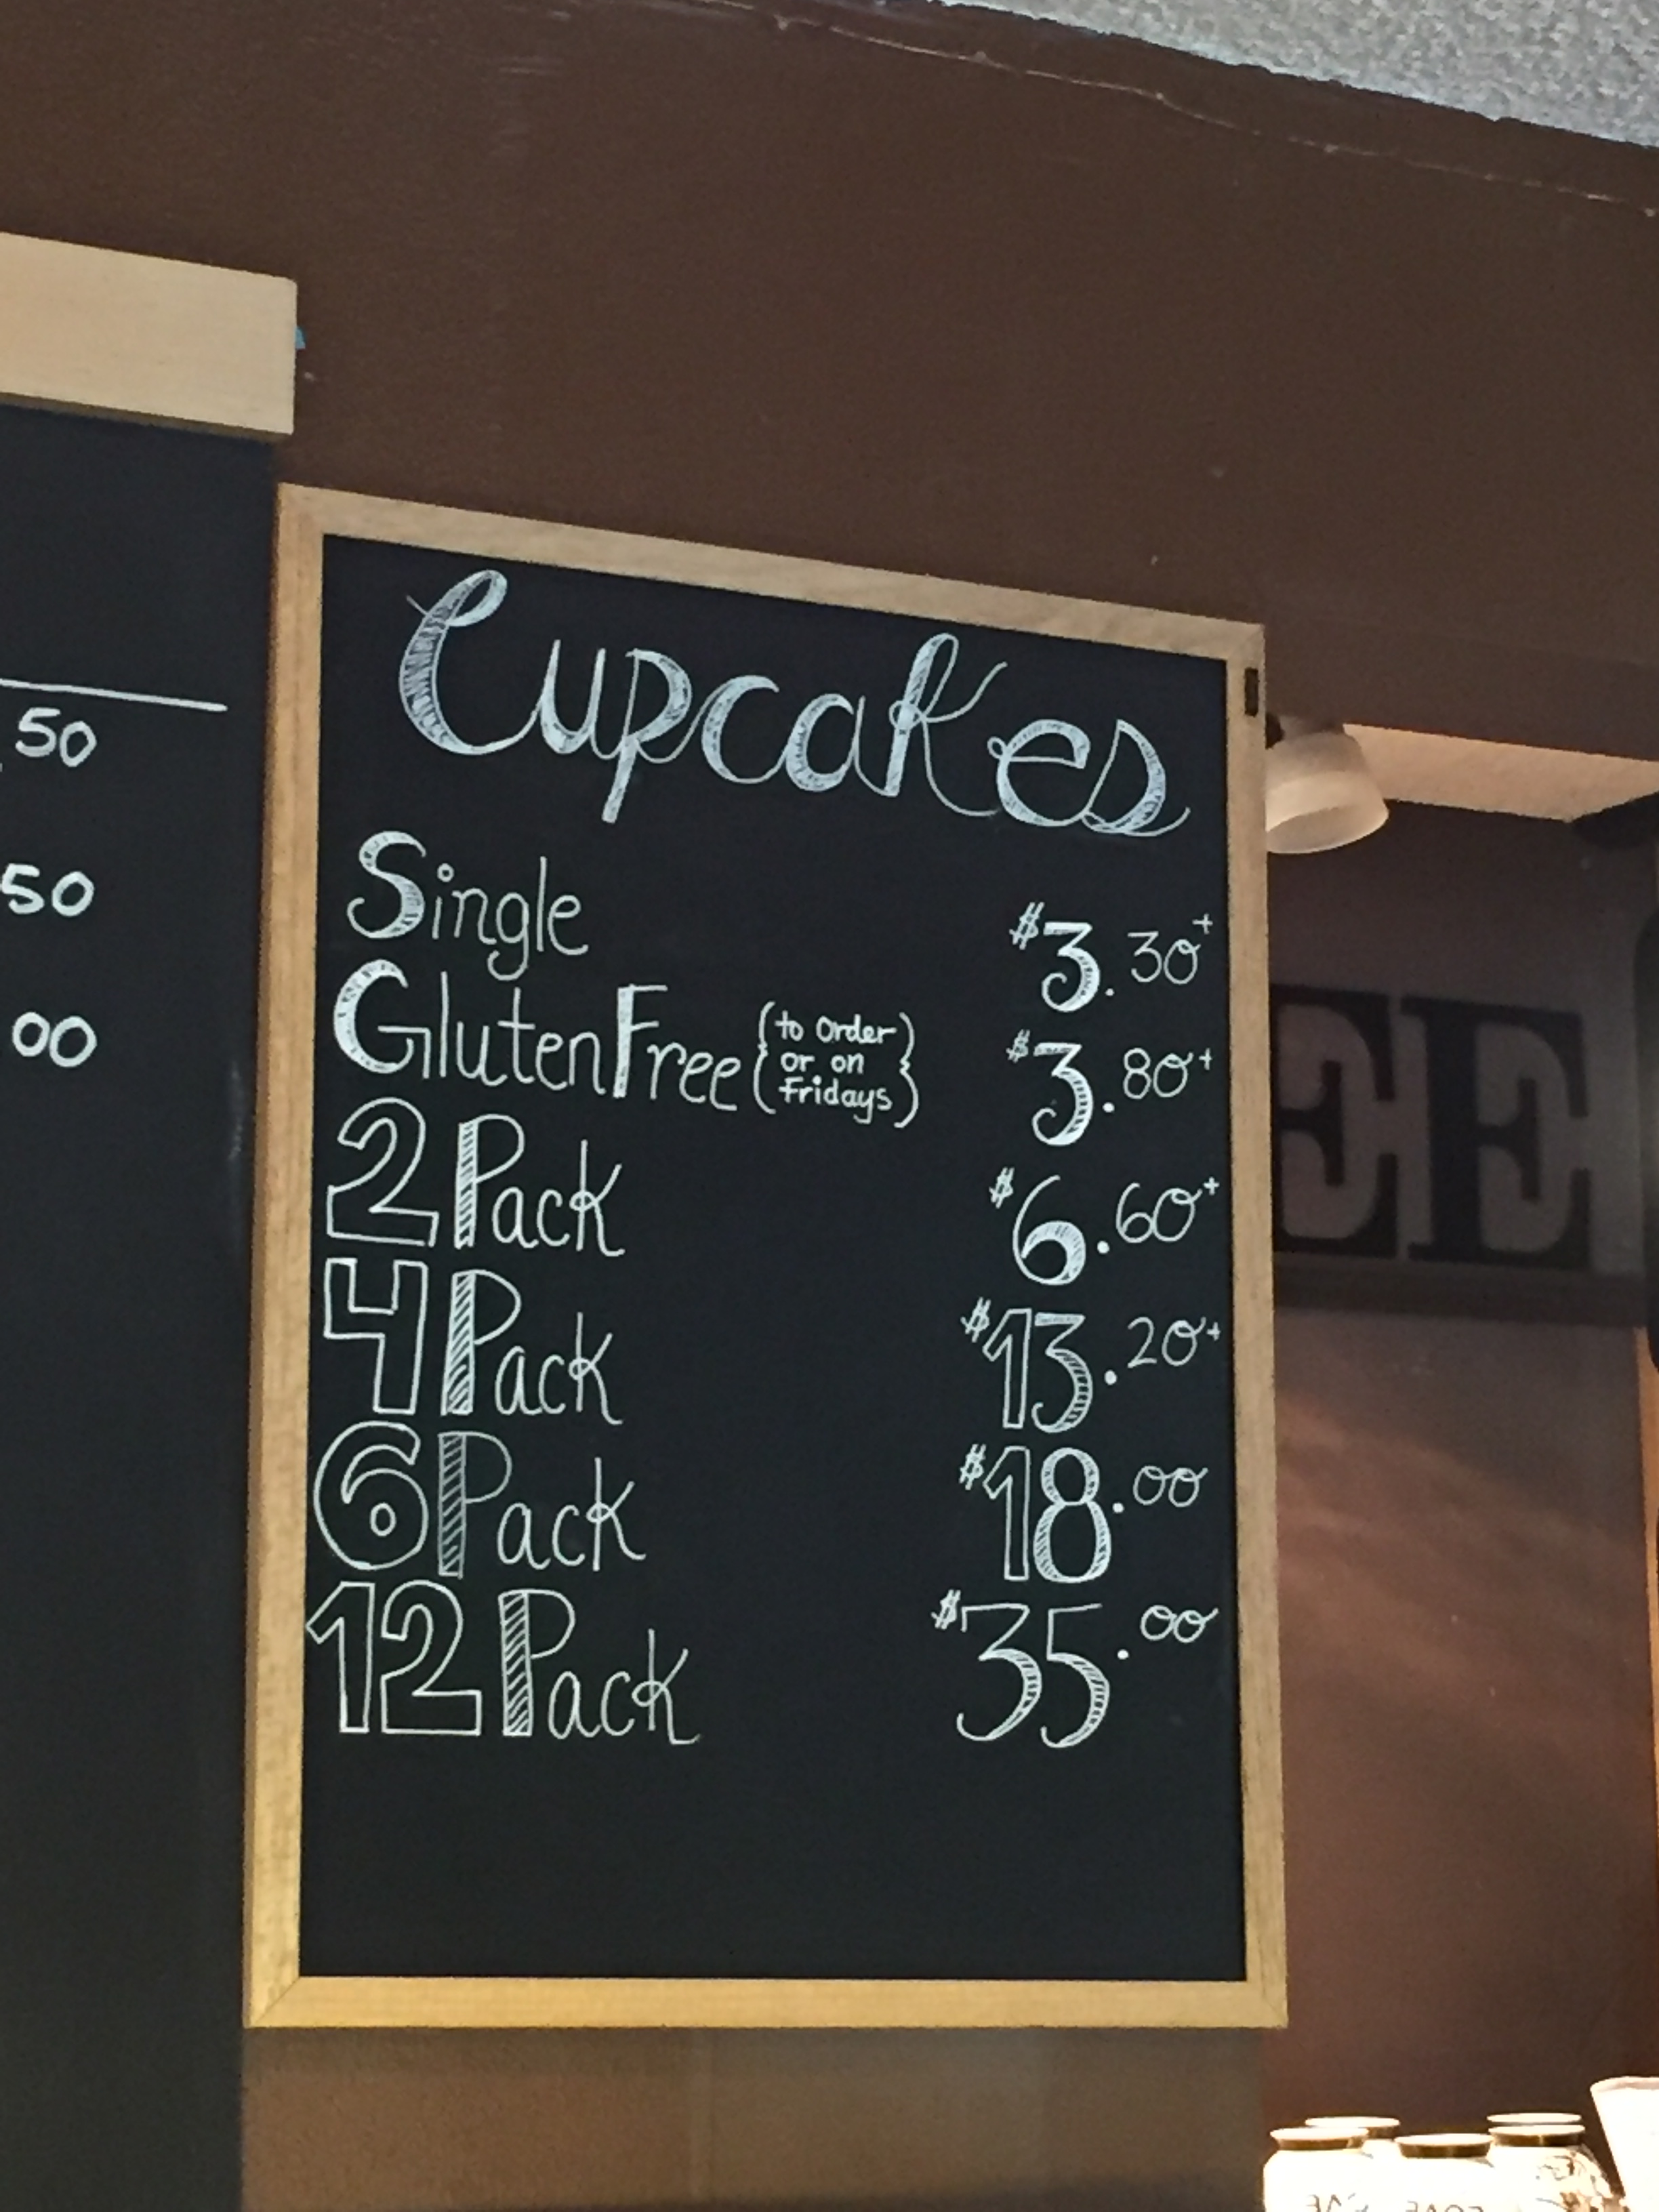 50
50
00
Cupcakes
Single $3.30+
Gluten Free {to Order or on Fridays} $3.80+
2 Pack $6.60+
4 Pack $13.20+
6 Pack $18.00
12 Pack $35.00
EE